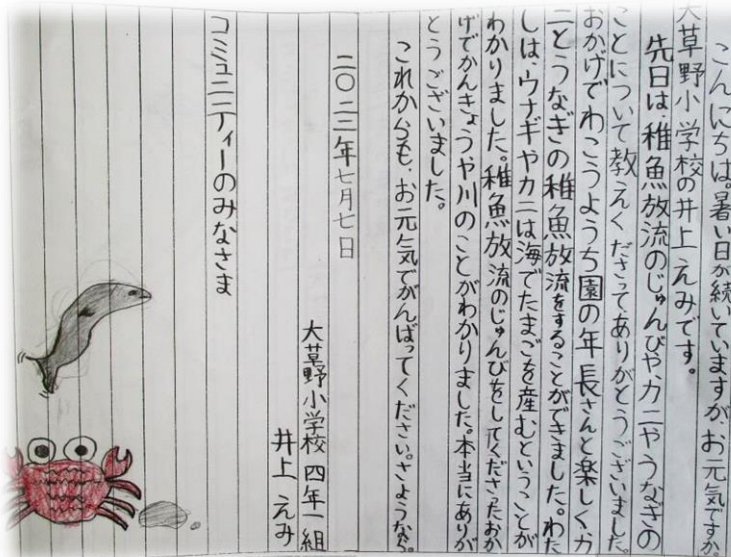 こんにちは。暑い日が続いていますが、お元気ですか。
大草野小学校の井上えみです。
先日は、稚魚放流のじゅんびや、カニやうなぎの
ことについて教えくださって、ありがとうございました
おかげでわこうようち園の年長さんと楽しくカ
ニとうなぎの稚魚放流をすることができました。わた
しは、ウナギやカニは海でたまごを産むということが
わかりました。稚魚放流のじゅんびをしてくださったおか
げでかんきょうや川のことがわかりました。本当にありが
とうございました。
これからも、お元気でがんばってください。さようなら。
二〇二二年七月七日
大草野小学校 四年一組
井上 えみ
コミュニティーのみなさま